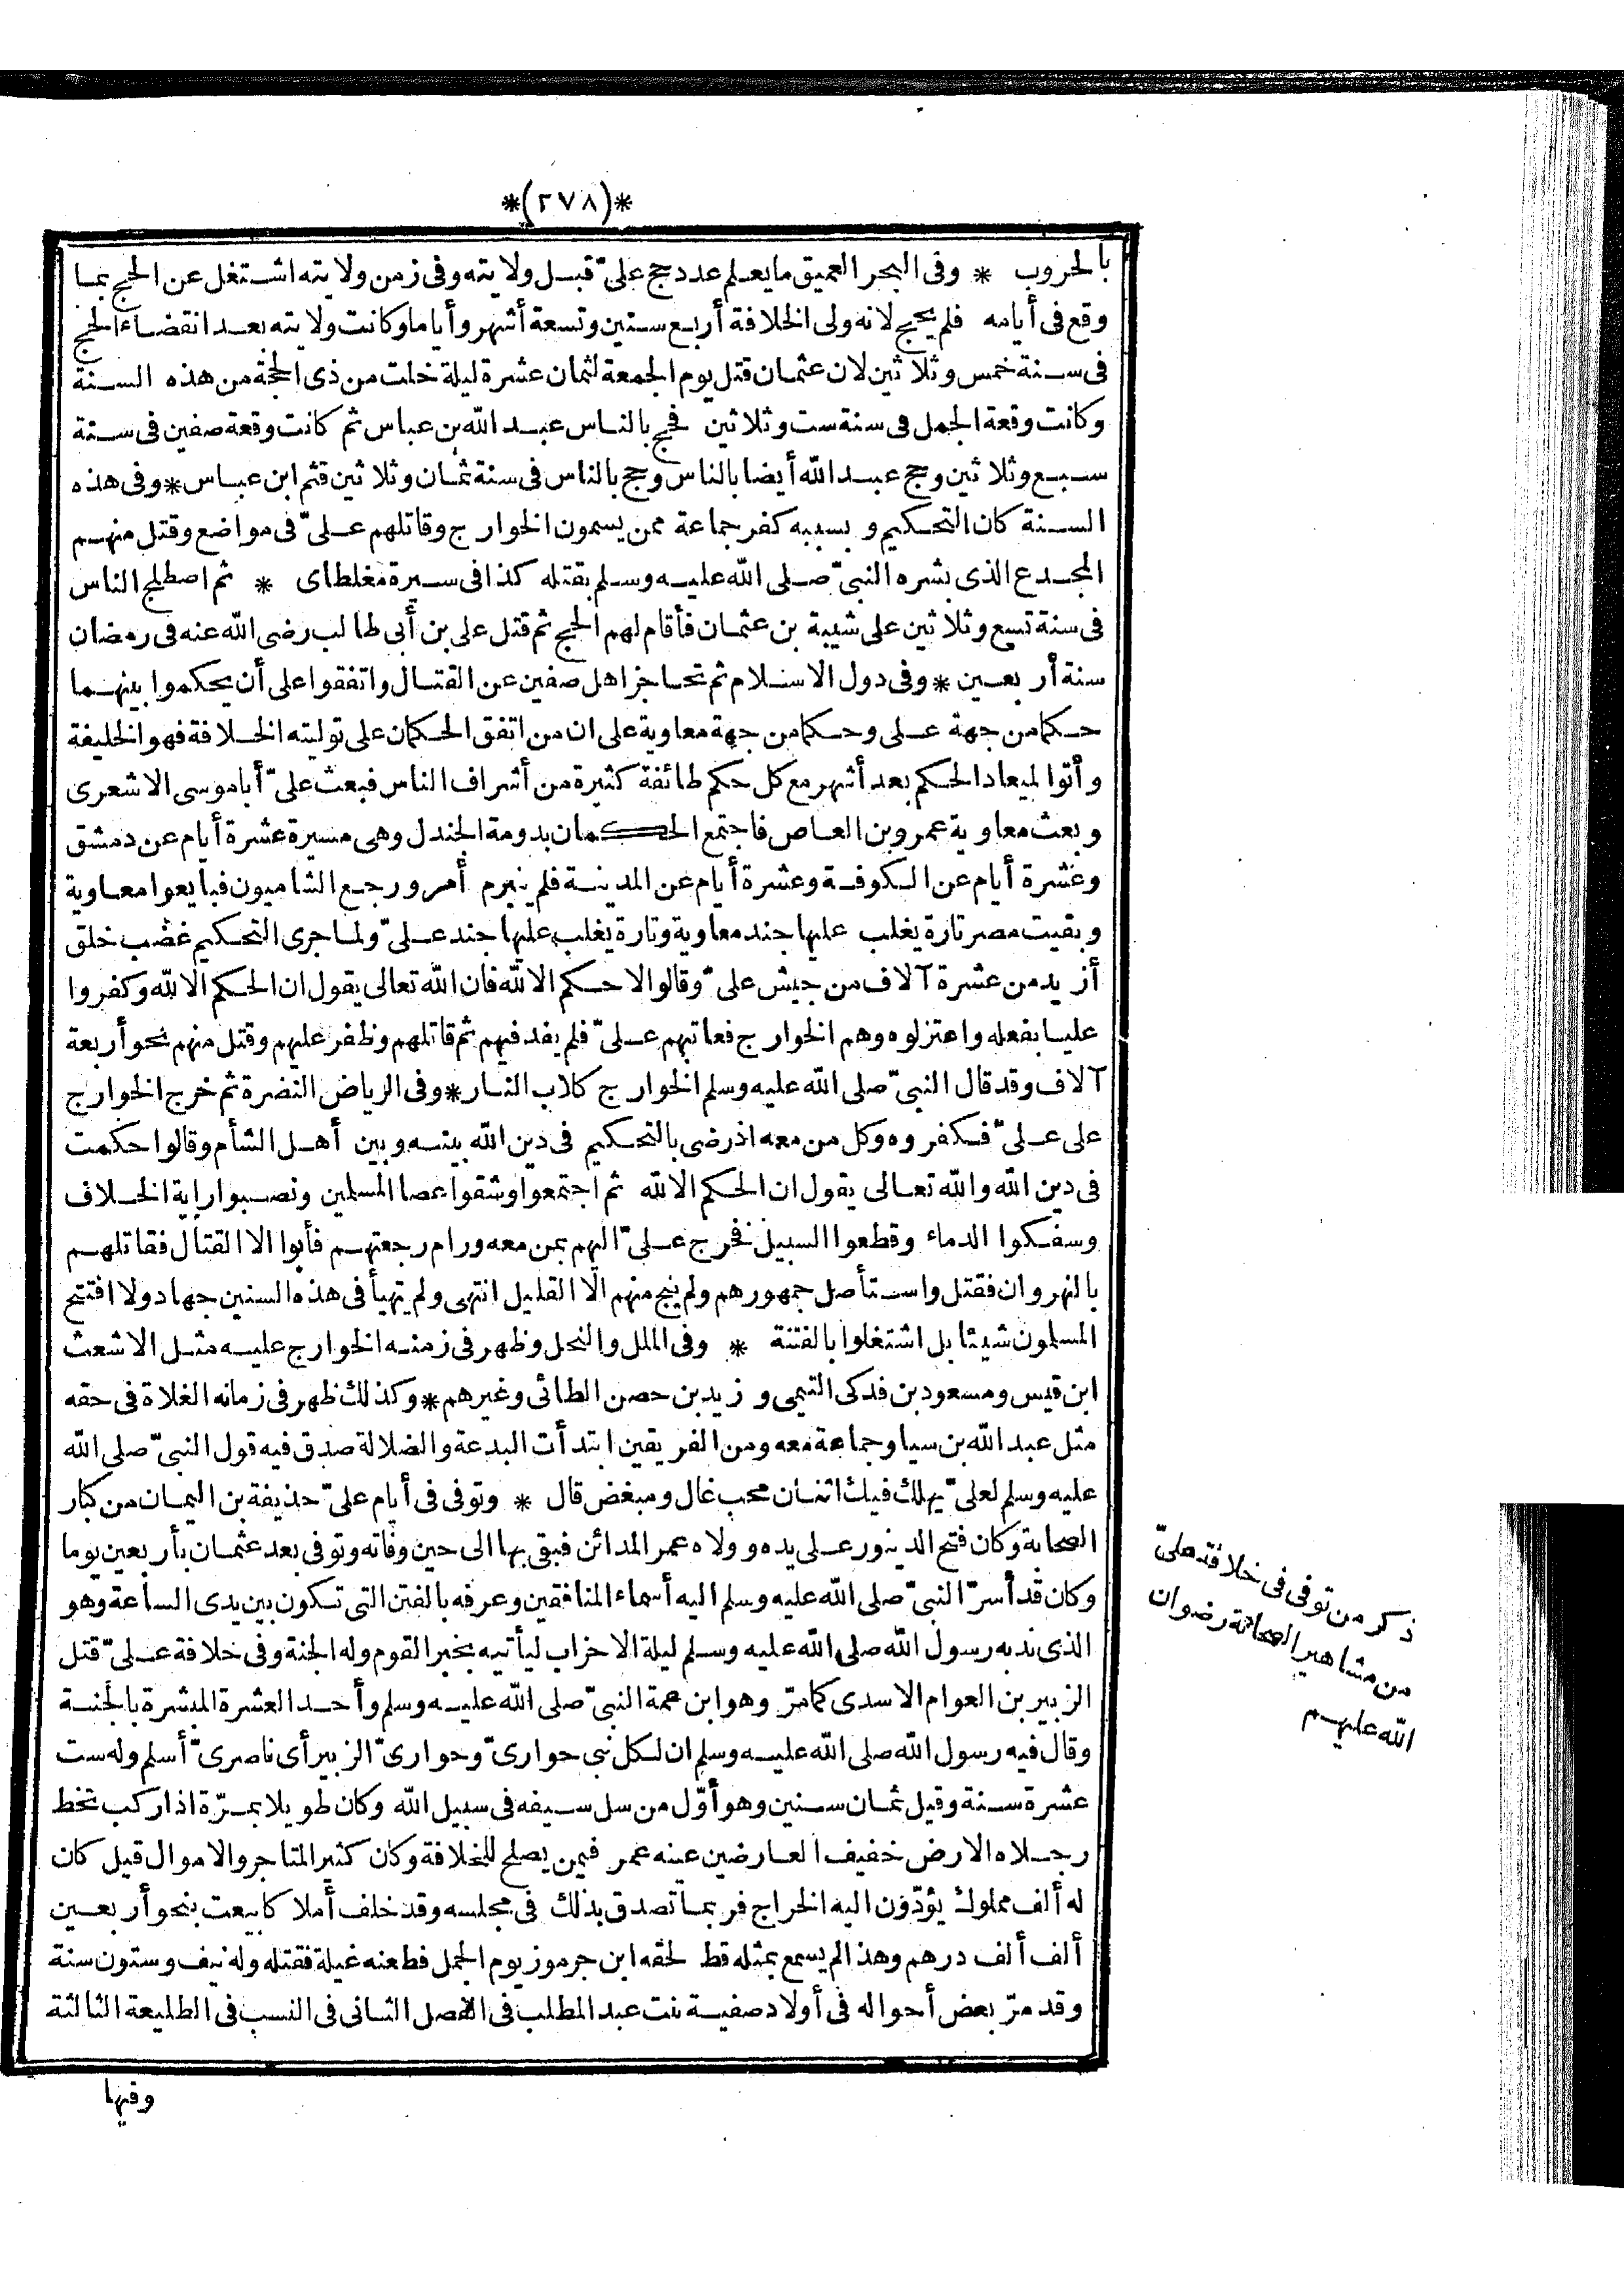 *(٢٧٨)*
بالحروب * وفى البحر العميق ما يعلم عدد حج علىّ قبل ولايته وفى زمن ولايته اشتغل عن الحج بما
وقع فى أيامه فلم يحج لانه ولى الخلافة أربع سنين وتسعة أشهر وأياما وكانت ولايته بعد انقضاء الحج
فى سنة خمس وثلاثين لان عثمان قتل يوم الجمعة لثمان عشرة ليلة خلت من ذى الحجة من هذه السنة
وكانت وقعة الجمل فى سنة ست وثلاثين فحج بالناس عبد الله بن عباس ثم كانت وقعة صفين فى سنة
سبع وثلاثين وحج عبد الله أيضا بالناس وحج بالناس فى سنة ثمان وثلاثين قثم ابن عباس * وفى هذه
السنة كان التحكيم وبسببه كفر جماعة ممن يسمون الخوارج وقاتلهم علىّ فى مواضع وقتل منهم
المجدع الذى بشره النبىّ صلى الله عليه وسلم بقتله كذا فى سيرة مغلطاى * ثم اصطلح الناس
فى سنة تسع وثلاثين على شيبة بن عثمان فأقام لهم الحج ثم قتل على بن أبى طالب رضى الله عنه فى رمضان
سنة أربعين * وفى دول الاسلام ثم تحاجز اهل صفين عن القتال واتفقوا على أن يحكموا بينهما
حكما من جهة على وحكما من جهة معاوية على ان من اتفق الحكمان على توليته الخلافة فهو الخليفة
وأتوا لميعاد الحكم بعد أشهر مع كل حكم طائفة كثيرة من أشراف الناس فبعث علىّ أبا موسى الاشعرى
وبعث معاوية عمرو بن العاص فاجتمع الحكمان بدومة الجندل وهى مسيرة عشرة أيام عن دمشق
وعشرة أيام عن الكوفة وعشرة أيام عن المدينة فلم ينبرم أمر ورجع الشاميون فبايعوا معاوية
وبقيت مصر تارة يغلب عليها جند معاوية وتارة يغلب عليها جند علىّ ولما جرى التحكيم غضب خلق
أزيد من عشرة آلاف من جيش علىّ وقالوا لا حكم الا لله فان الله تعالى يقول ان الحكم الا لله وكفروا
عليا بفعله واعتزلوه وهم الخوارج فعاتبهم علىّ فلم يفد فيهم ثم قاتلهم وظفر عليهم وقتل منهم نحو أربعة
آلاف وقد قال النبىّ صلى الله عليه وسلم الخوارج كلاب النار * وفى الرياض النضرة ثم خرج الخوارج
على علىّ فكفروه وكل من معه اذ رضى بالتحكيم فى دين الله بينه وبين أهل الشأم وقالوا حكمت
فى دين الله والله تعالى يقول ان الحكم الا لله ثم اجتمعوا وشقوا عصا المسلمين ونصبوا راية الخلاف
وسفكوا الدماء وقطعوا السبيل فخرج علىّ اليهم بمن معه ورام رجعتهم فأبوا الا القتال فقاتلهم
بالنهروان فقتل واستأصل جمهورهم ولم ينج منهم الّا القليل انتهى ولم يتهيأ فى هذه السنين جهاد ولا افتتح
المسلمون شيئا بل اشتغلوا بالفتنة * وفى الملل والنحل وظهر فى زمنه الخوارج عليه مثل الاشعث
ابن قيس ومسعود بن فدكى التيمى وزيد بن حصن الطائى وغيرهم * وكذلك ظهر فى زمانه الغلاة فى حقه
مثل عبد الله بن سبا وجماعة معه ومن الفريقين ابتدأت البدعة والضلالة صدق فيه قول النبىّ صلى الله
عليه وسلم لعلىّ يهلك فيك اثنان محب غال ومبغض قال * وتوفى فى أيام علىّ حذيفة بن اليمان من كبار
الصحابة وكان فتح الدينور على يده وولاه عمر المدائن فبقى بها الى حين وفاته وتوفى بعد عثمان بأربعين يوما
وكان قد أسرّ النبىّ صلى الله عليه وسلم اليه أسماء المنافقين وعرفه بالفتن التى تكون بين يدى الساعة وهو
الذى ندبه رسول الله صلى الله عليه وسلم ليلة الاحزاب ليأتيه بخبر القوم وله الجنة وفى خلافة علىّ قتل
الزبير بن العوام الاسدى كما مرّ وهو ابن عمة النبىّ صلى الله عليه وسلم وأحد العشرة المبشرة بالجنة
وقال فيه رسول الله صلى الله عليه وسلم ان لكل نبى حوارىّ وحوارىّ الزبير أى ناصرىّ أسلم وله ست
عشرة سنة وقيل ثمان سنين وهو أوّل من سل سيفه فى سبيل الله وكان طويلا بمرّة اذا ركب تخط
رجلاه الارض خفيف العارضين عينه عمر فيمن يصلح للخلافة وكان كثير المتاجر والاموال قيل كان
له ألف مملوك يؤدّون اليه الخراج فربما تصدق بذلك فى مجلسه وقد خلف أملاكا بيعت بنحو أربعين
ألف ألف درهم وهذا لم يسمع بمثله قط لحقه ابن جرموز يوم الجمل فطعنه غيلة فقتله وله نيف وستون سنة
وقد مرّ بعض أحواله فى أولاد صفية بنت عبد المطلب فى الفصل الثانى فى النسب فى الطليعة الثالثة
وفيها
ذكر من توفى فى خلافة علىّ
من مشاهير الصحابة رضوان
الله عليهم